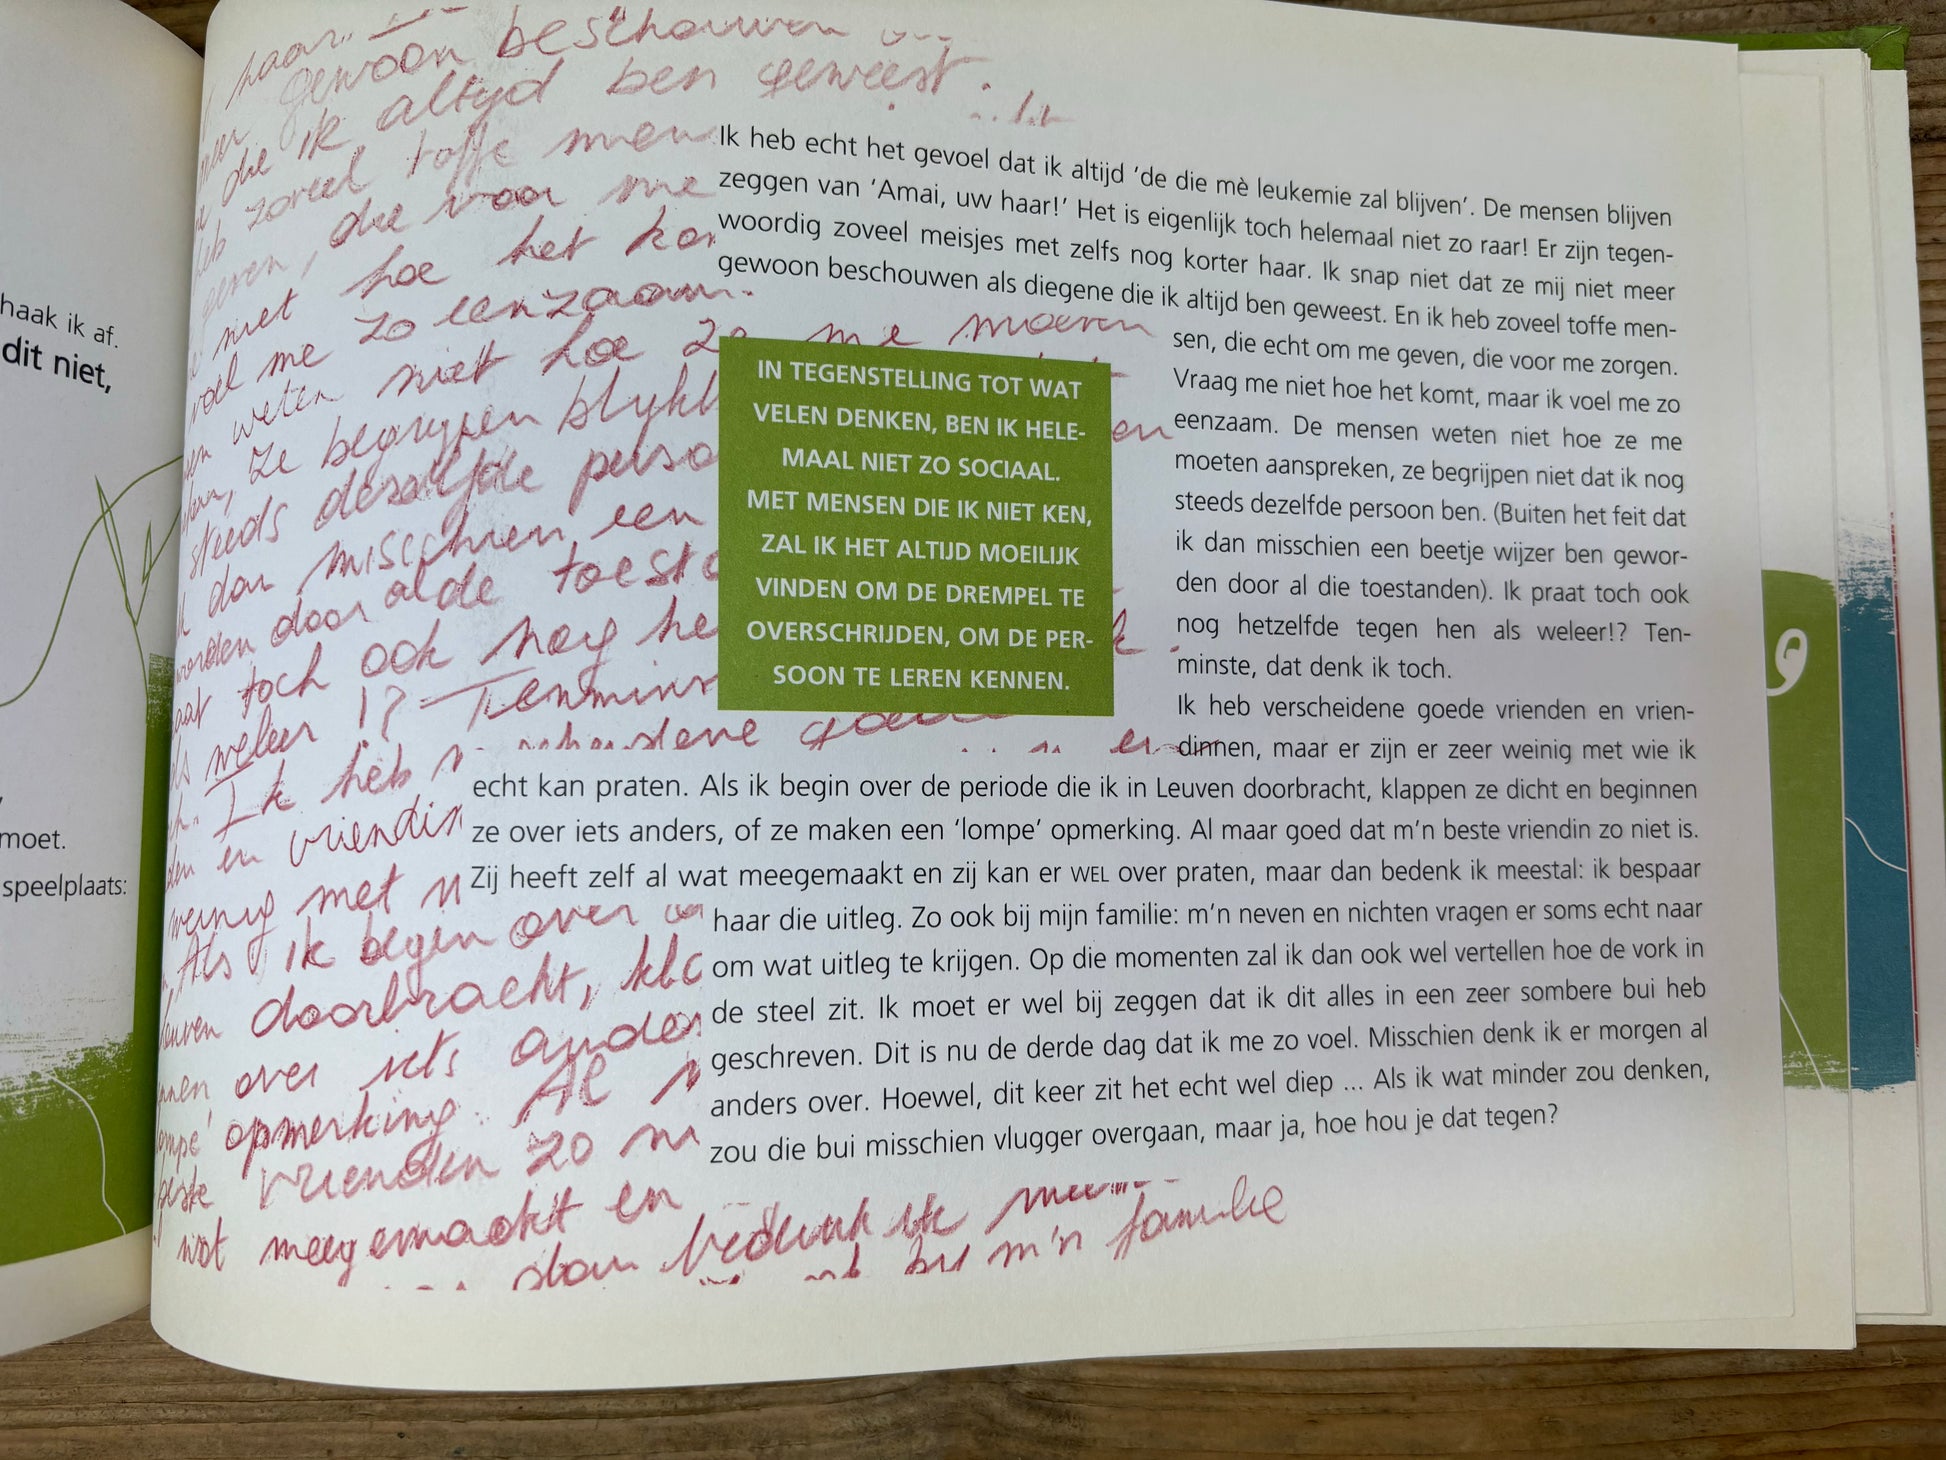 haak ik af.
dit niet,
moet.
speelplaats:
haar.
gewoon beschouwen
die ik altijd ben geweest.
zoveel toffe men
geven, die voor me
niet hoe het kom
voel me zo eenzaam.
weten niet hoe ze me moeten
ze begrijpen blijkb
steeds dezelfde perso
dan misschien een
worden door al de toesta
praat toch ook nog he
als weleer !? Tenmins
Ik heb verscheidene goede
vriendin
weinig met w
Als ik begin over
Leuven doorbracht, kla
over iets ander
opmerking. Al m
vrienden zo ni
wat meegemaakt en
dan bedenk ik mee
bij m'n familie
Ik heb echt het gevoel dat ik altijd ‘de die mè leukemie zal blijven’. De mensen blijven
zeggen van ‘Amai, uw haar!’ Het is eigenlijk toch helemaal niet zo raar! Er zijn tegen-
woordig zoveel meisjes met zelfs nog korter haar. Ik snap niet dat ze mij niet meer
gewoon beschouwen als diegene die ik altijd ben geweest. En ik heb zoveel toffe men-
sen, die echt om me geven, die voor me zorgen.
Vraag me niet hoe het komt, maar ik voel me zo
eenzaam. De mensen weten niet hoe ze me
moeten aanspreken, ze begrijpen niet dat ik nog
steeds dezelfde persoon ben. (Buiten het feit dat
ik dan misschien een beetje wijzer ben gewor-
den door al die toestanden). Ik praat toch ook
nog hetzelfde tegen hen als weleer!? Ten-
minste, dat denk ik toch.
Ik heb verscheidene goede vrienden en vrien-
dinnen, maar er zijn er zeer weinig met wie ik
echt kan praten. Als ik begin over de periode die ik in Leuven doorbracht, klappen ze dicht en beginnen
ze over iets anders, of ze maken een ‘lompe’ opmerking. Al maar goed dat m’n beste vriendin zo niet is.
Zij heeft zelf al wat meegemaakt en zij kan er WEL over praten, maar dan bedenk ik meestal: ik bespaar
haar die uitleg. Zo ook bij mijn familie: m’n neven en nichten vragen er soms echt naar
om wat uitleg te krijgen. Op die momenten zal ik dan ook wel vertellen hoe de vork in
de steel zit. Ik moet er wel bij zeggen dat ik dit alles in een zeer sombere bui heb
geschreven. Dit is nu de derde dag dat ik me zo voel. Misschien denk ik er morgen al
anders over. Hoewel, dit keer zit het echt wel diep ... Als ik wat minder zou denken,
zou die bui misschien vlugger overgaan, maar ja, hoe hou je dat tegen?
IN TEGENSTELLING TOT WAT
VELEN DENKEN, BEN IK HELE-
MAAL NIET ZO SOCIAAL.
MET MENSEN DIE IK NIET KEN,
ZAL IK HET ALTIJD MOEILIJK
VINDEN OM DE DREMPEL TE
OVERSCHRIJDEN, OM DE PER-
SOON TE LEREN KENNEN.